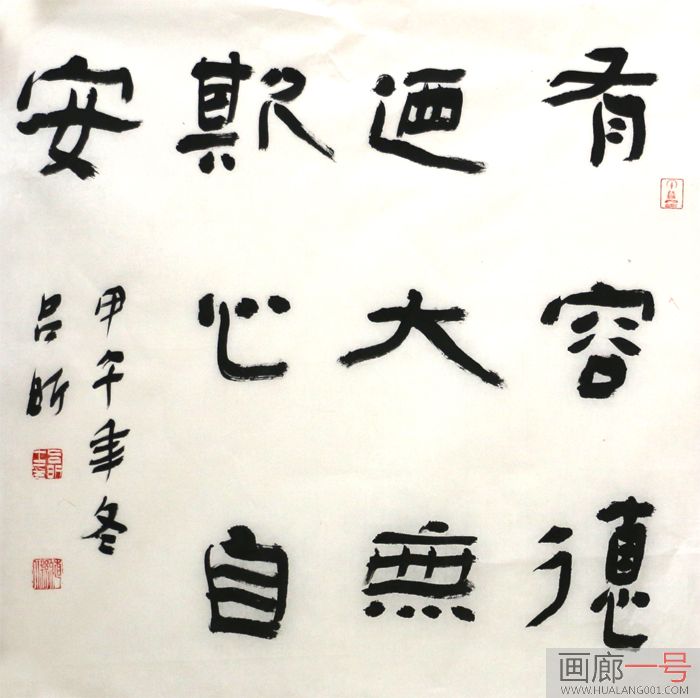 有容德
迺大無
欺心自
安
甲午年冬
吕昕
画廊一号
WWW.HUALANG001.COM